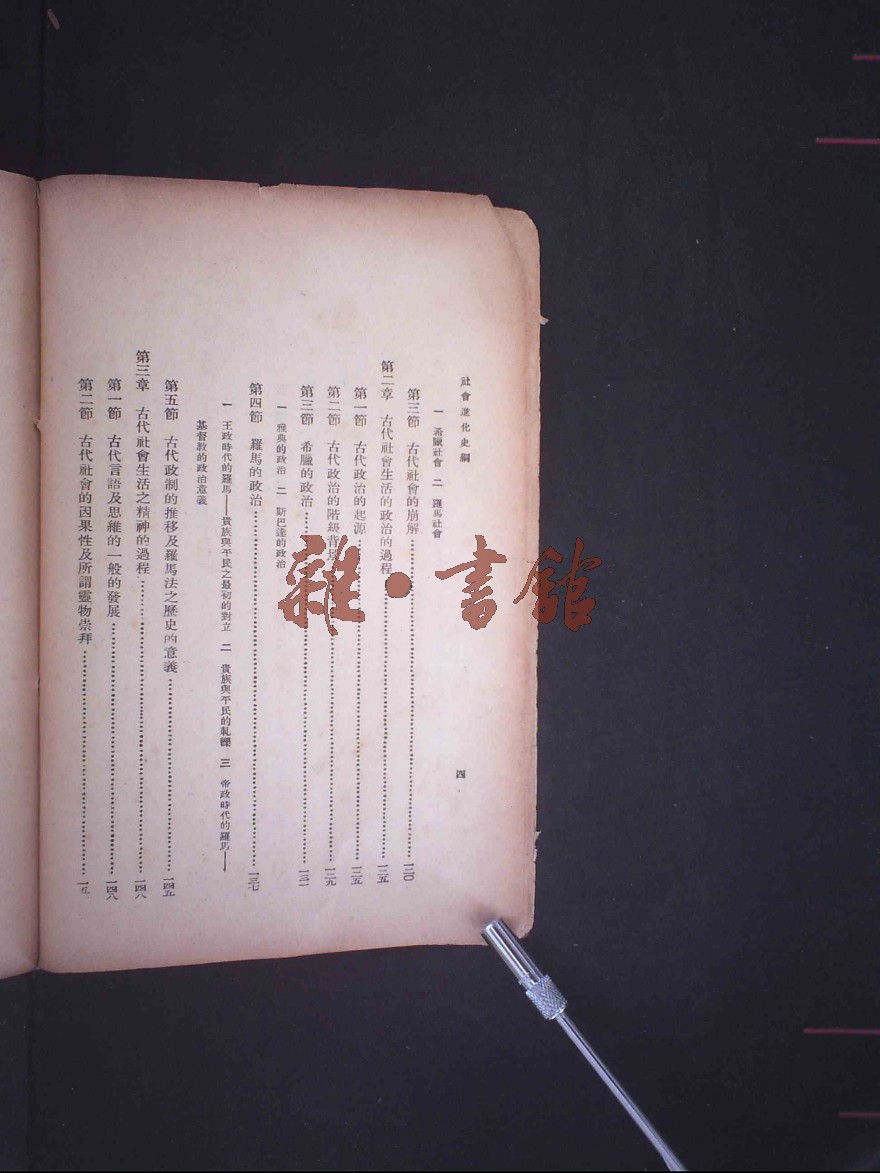 社會進化史綱
四
一 希臘社會 二 羅馬社會
第三節 古代社會的崩解……一三〇
第二章 古代社會生活的政治的過程……一三五
第一節 古代政治的起源……一三五
第二節 古代政治的階級背景……一三九
第三節 希臘的政治……一三一
一 雅典的政治 二 斯巴達的政治
第四節 羅馬的政治……一三七
一 王政時代的羅馬——貴族與平民之最初的對立 二 貴族與平民的軋轢 三 帝政時代的羅馬——
基督教的政治意義
第五節 古代政制的推移及羅馬法之歷史的意義……一四五
第三章 古代社會生活之精神的過程……一四八
第一節 古代言語及思維的一般的發展……一四八
第二節 古代社會的因果性及所謂靈物崇拜……一五
雜·書館